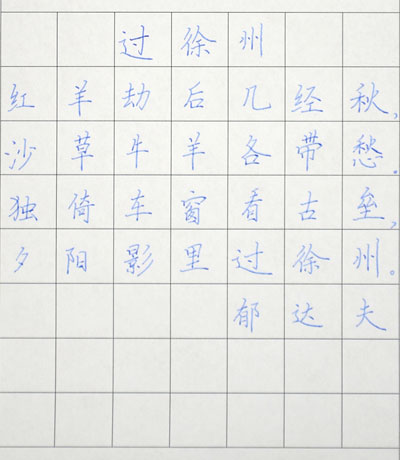 过徐州
红羊劫后几经秋,
沙草牛羊各带愁.
独倚车窗看古垒,
夕阳影里过徐州。
郁达夫